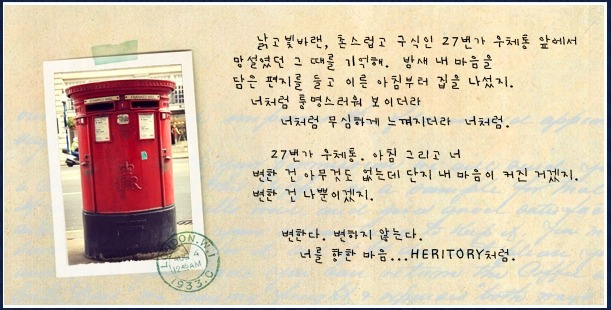 낡고 빛바랜, 촌스럽고 구식인 27번가 우체통 앞에서
망설였던 그 때를 기억해. 밤새 내 마음을
담은 편지를 들고 이른 아침부터 집을 나섰지.
너처럼 퉁명스러워 보이더라
너처럼 무심하게 느껴지더라 너처럼.
27번가 우체통. 아침 그리고 너
변한 건 아무것도 없는데 단지 내 마음이 커진 거겠지.
변한 건 나뿐이겠지.
변한다. 변하지 않는다.
너를 향한 마음...HERITORY처럼.
LONDON.W.1
AUG 4
12:15AM
1933.C